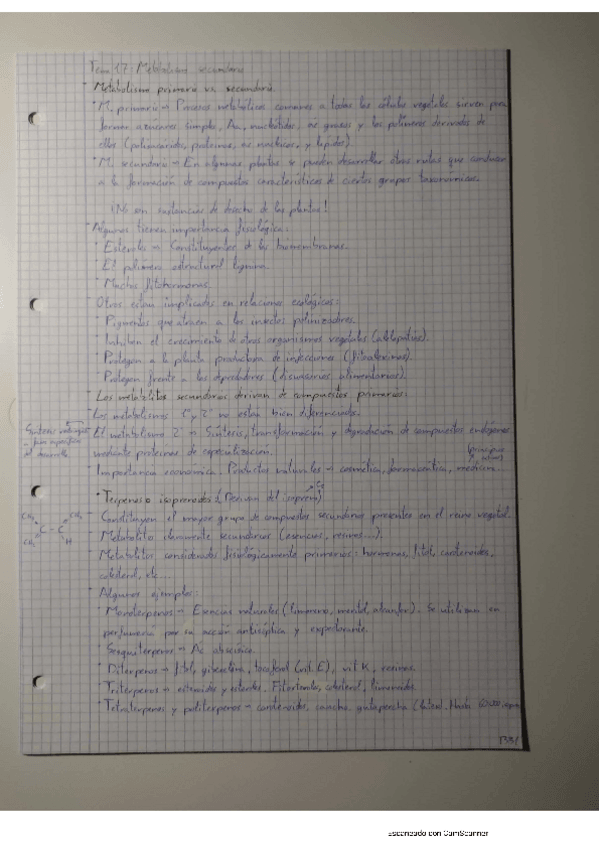 Tema 17: Metabolismo secundario
Metabolismo primario vs. secundario.
M. primario → Procesos metabólicos comunes a todas las células vegetales sirven para
formar azúcares simples, Aa, nucleótidos, ac. grasos y los polímeros derivados de
ellos (polisacáridos, proteínas, ac. nucleicos, y lípidos)
M. secundario → En algunas plantas se pueden desarrollar otras rutas que conducen
a la formación de compuestos característicos de ciertos grupos taxonómicos.
¡No son sustancias de desecho de las plantas!
Algunos tienen importancia fisiológica:
Esteroles → Constituyentes de las biomembranas.
El polímero estructural lignina.
Muchas fitohormonas.
Otros están implicados en relaciones ecológicas:
Pigmentos que atraen a los insectos polinizadores.
Inhiben el crecimiento de otros organismos vegetales (alelopatías).
Protegen a la planta productora de infecciones (fitoalexinas).
Protegen frente a los depredadores (disuasorios alimentarios).
Los metabolitos secundarios derivan de compuestos primarios:
Los metabolismos 1º y 2º no están bien diferenciados.
El metabolismo 2º → Síntesis, transformación y degradación de compuestos endógenos
mediante proteínas de especialización.
(principios
activos)
Importancia económica. Productos naturales → cosmética, farmacéutica, medicina...
Terpenos o isoprenoides (Derivan del isopreno)
Constituyen el mayor grupo de compuestos secundarios presentes en el reino vegetal.
CH₃ CH₃
C - C
CH₃ H
Metabolitos claramente secundarios (esencias, resinas...).
Metabolitos considerados fisiológicamente primarios: hormonas, fitol, carotenoides,
colesterol, etc...
Algunos ejemplos:
Monoterpenos → Esencias naturales (limoneno, mentol, alcanfor). Se utilizan en
perfumería por su acción antiséptica y expectorante.
Sesquiterpenos → Ac. abscísico.
Diterpenos → fitol, giberelina, tocoferol (vit. E), vit K, resinas.
Triterpenos → esteroides y esteroles. Fitosteroles, colesterol, limonoides.
Tetraterpenos y politerpenos → carotenoides, caucho, gutapercha
Escaneado con CamScanner